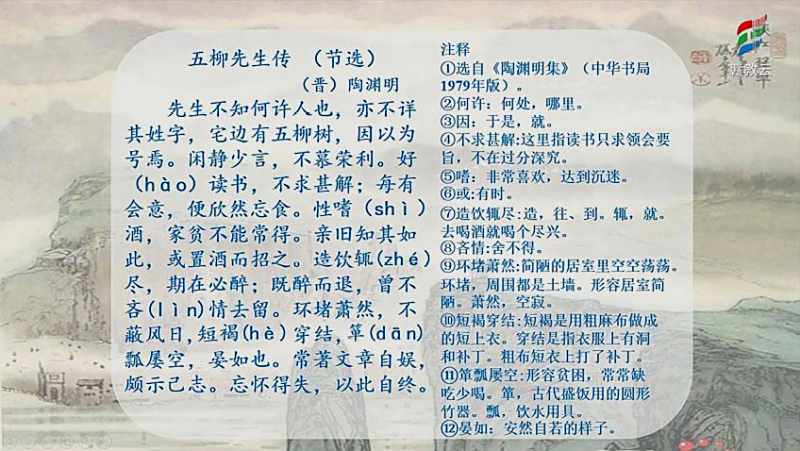 五柳先生传 （节选）
（晋）陶渊明
先生不知何许人也，亦不详
其姓字，宅边有五柳树，因以为
号焉。闲静少言，不慕荣利。好
（hào）读书，不求甚解；每有
会意，便欣然忘食。性嗜（shì）
酒，家贫不能常得。亲旧知其如
此，或置酒而招之。造饮辄(zhé)
尽，期在必醉；既醉而退，曾不
吝(lìn)情去留。环堵萧然，不
蔽风日,短褐(hè)穿结,箪(dān)
瓢屡空，晏如也。常著文章自娱，
颇示己志。忘怀得失，以此自终。
注释
①选自《陶渊明集》（中华书局
1979年版）。
②何许：何处，哪里。
③因：于是，就。
④不求甚解:这里指读书只求领会要
旨，不在过分深究。
⑤嗜：非常喜欢，达到沉迷。
⑥或:有时。
⑦造饮辄尽:造，往、到。辄，就。
去喝酒就喝个尽兴。
⑧吝情:舍不得。
⑨环堵萧然:简陋的居室里空空荡荡。
环堵，周围都是土墙。形容居室简
陋。萧然，空寂。
⑩短褐穿结:短褐是用粗麻布做成
的短上衣。穿结是指衣服上有洞
和补丁。粗布短衣上打了补丁。
⑪箪瓢屡空:形容贫困，常常缺
吃少喝。箪，古代盛饭用的圆形
竹器。瓢，饮水用具。
⑫晏如：安然自若的样子。